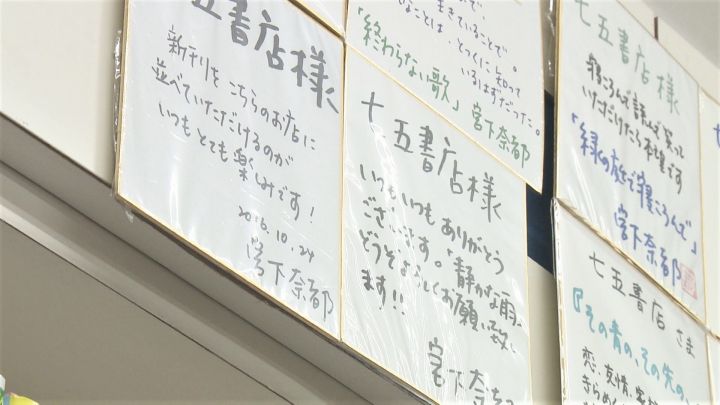 五書店様
新刊を こちらのお店に
並べていただけるのが
いつも とても 楽しみです！
2016.10.24
宮下奈都
生きていることで、
なことは、とっくに知って
いるはずだった。
「終わらない歌」宮下奈都
七五書店様
いつもいつも ありがとう
ございます。「静かな雨」
どうぞよろしくお願い致し
ます！！
宮下奈
七五書店様
寝ころんで読んで笑って
いただけたら本望です
「緑の庭で寝ころんで」
宮下奈都
七五書店 さま
『その青の、その先の、
恋、友情、家
きらめく